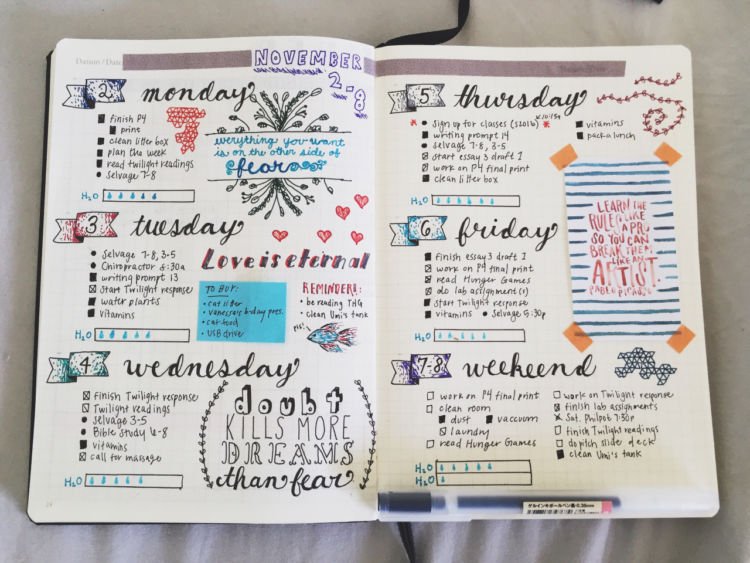 Datum / Date:
NOVEMBER
2-8
2 monday
finish P4
print
clean litter box
plan the week
read twilight readings
selvage 7-8
H2O
everything you want
is on the other side of
fear
3 tuesday
Selvage 7-8, 3-5
Chiropractor 8:30a
writing prompt 13
Start Twilight response
water plants
vitamins
H2O
Love is eternal
TO BUY:
• cat litter
• vanessa's b-day pres.
• cat food
• USB drive
REMINDERS:
• be reading THG
• clean Umi's tank
4 wednesday
finish Twilight response
Twilight readings
selvage 3-5
Bible Study 6-8
vitamins
call for massage
H2O
doubt
KILLS MORE
DREAMS
than fear
5 thursday
* sign up for classes (S2016) *
writing prompt 14
selvage 7-8, 3-5
start essay 3 draft 1
work on P4 final print
clean litter box
vitamins
pack a lunch
6 friday
finish essay 3 draft 1
work on P4 final print
read Hunger Games
do lab assignment(s)
start Twilight response
vitamins • Selvage 5:30p
H2O
LEARN THE
RULES LIKE
A PRO
SO YOU CAN
BREAK THEM
LIKE AN
ARTIST.
PABLO PICASSO
7-8 weekend
work on P4 final print
clean room
dust vaccum
laundry
read Hunger Games
H2O
H2O
work on Twilight response
finish lab assignments
Sat. Philpot 7:30p
finish Twilight readings
do pitch slide deck
clean Umi's tank
ゲルインキボールペン黒・0.38mm